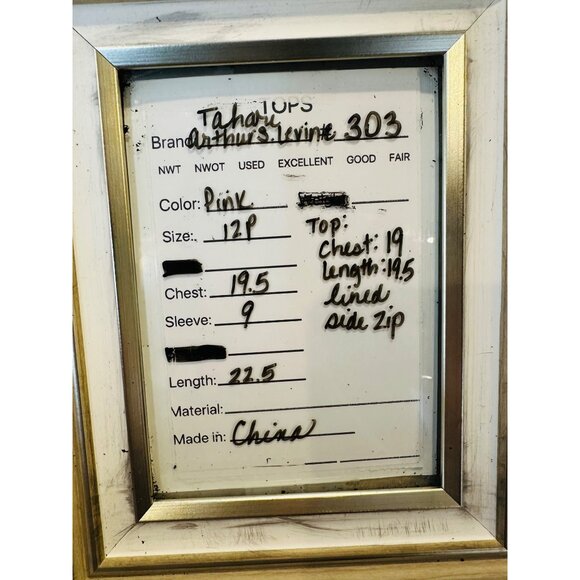 TOPS
Tahari
Brand Arthur S. Levine 303
NWT NWOT USED EXCELLENT GOOD FAIR
Color: Pink
Size: 12P
Chest: 19.5
Sleeve: 9
Length: 22.5
Material:
Made in: China
Top:
Chest: 19
length: 19.5
lined
side zip